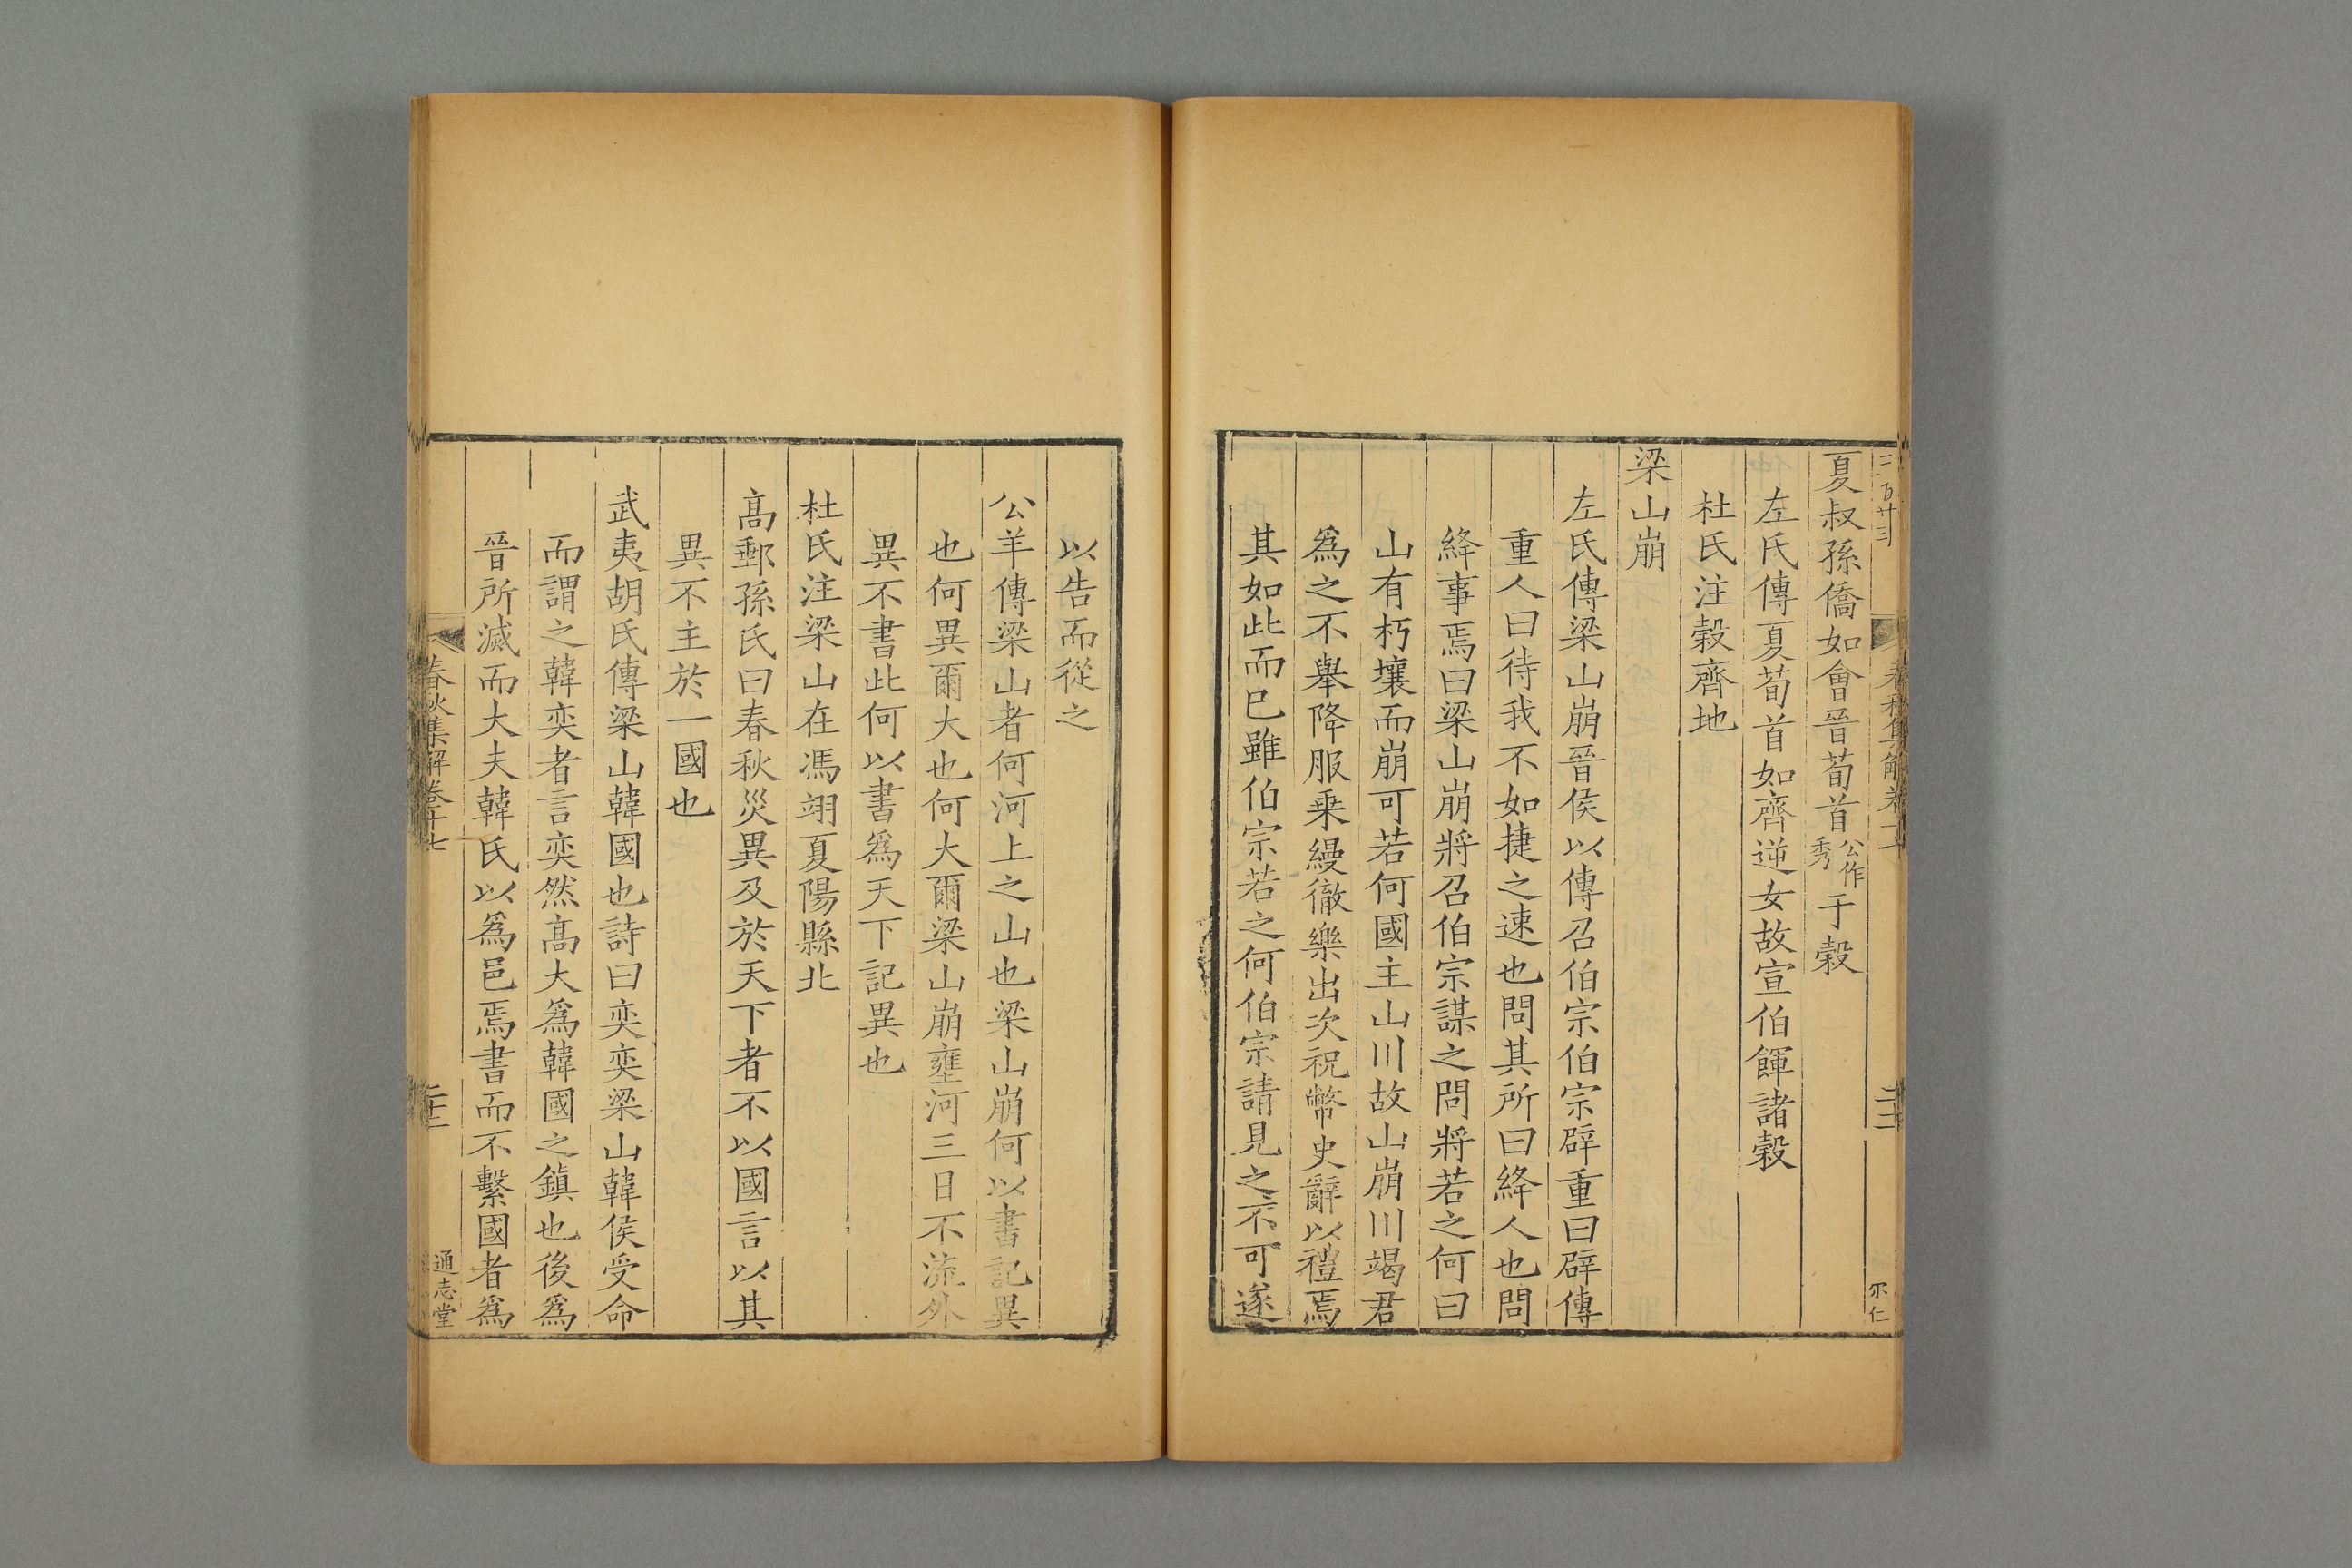 夏叔孫僑如會晉荀首公作秀于穀
左氏傳夏荀首如齊逆女故宣伯餫諸穀
杜氏注穀齊地
梁山崩
左氏傳梁山崩晉侯以傳召伯宗伯宗辟重曰辟傳
重人曰待我不如捷之速也問其所曰絳人也問
絳事焉曰梁山崩將召伯宗謀之問將若之何曰
山有朽壤而崩可若何國主山川故山崩川竭君
爲之不舉降服乗縵徹樂出次祝幣史辭以禮焉
其如此而已雖伯宗若之何伯宗請見之不可遂
以告而從之
公羊傳梁山者何河上之山也梁山崩何以書記異
也何異爾大也何大爾梁山崩壅河三日不流外
異不書此何以書爲天下記異也
杜氏注梁山在馮翊夏陽縣北
髙郵孫氏曰春秋災異及於天下者不以國言以其
異不主於一國也
武夷胡氏傳梁山韓國也詩曰奕奕梁山韓侯受命
而謂之韓奕者言奕然髙大爲韓國之鎮也後爲
晉所滅而大夫韓氏以爲邑焉書而不繫國者爲
春秋集解卷十七
通志堂